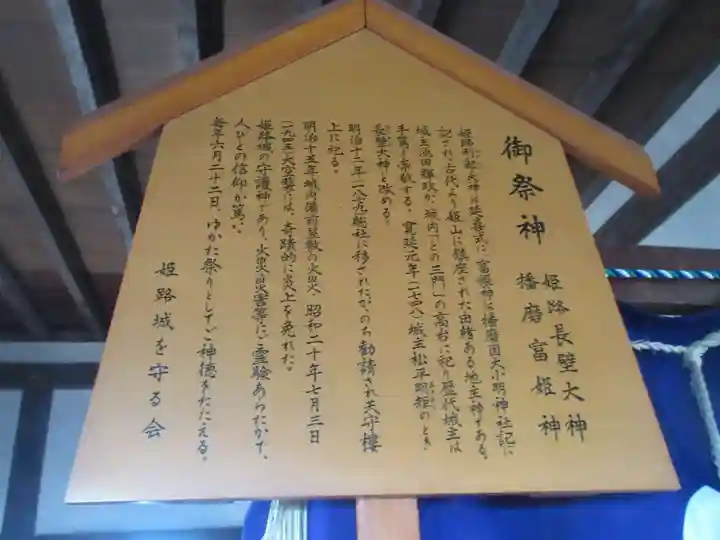 御祭神
姫路長壁大神
播磨富姫神
姫路刑部大神は延喜式に「富姫神」播磨国大小明神社記に
記され、古代より姫山に鎮座された由緒ある地主神である。
城主池田輝政が、城内「との三門」の高台に祀り歴代城主は
手篤く崇敬する。寛延元年(一七四八)城主松平明矩のとき、
長壁大神と改める。
明治十二年(一八七九)総社に移されたが、のち勧請され天守楼
上に祀る。
明治十五年城内備前屋敷の火災、昭和二十年七月三日
(一九四五)大空襲には、奇蹟的に炎上を免れた。
姫路城の守護神であり、火災、災害等にご霊験あらたかで、
人びとの信仰が篤い。
毎年六月二十二日、ゆかた祭りとしてご神徳をたたえる。
姫路城を守る会